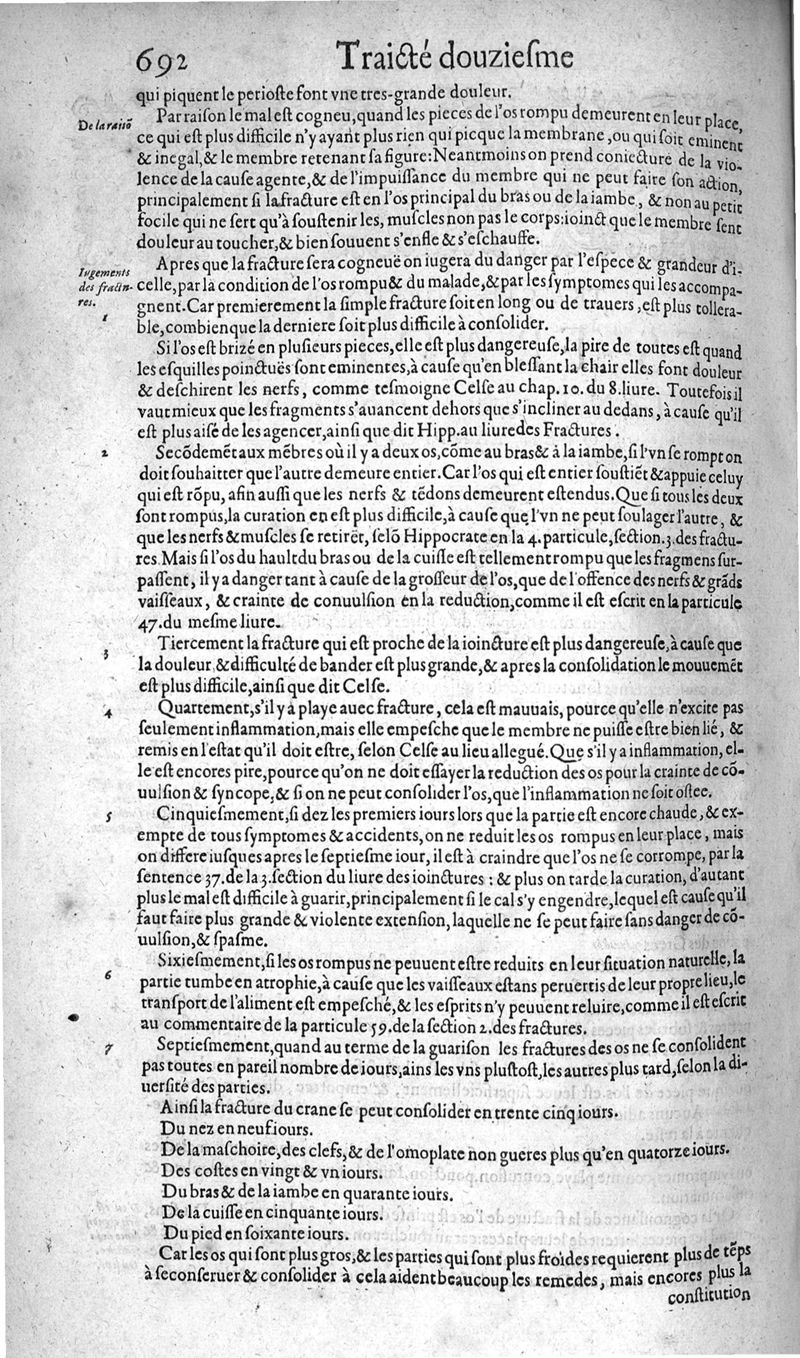 692 Traicté douziesme
qui piquent le perioste font vne tres-grande douleur.
De la raisō
Par raison le mal est cogneu, quand les pieces de l'os rompu demeurent en leur place,
ce qui est plus difficile n'y ayant plus rien qui picque la membrane, ou qui soit eminent
& inegal, & le membre retenant sa figure: Neantmoins on prend coniecture de la vio-
lence de la cause agente, & de l'impuissance du membre qui ne peut faire son action,
principalement si la fracture est en l'os principal du bras ou de la iambe, & non au petit
focile qui ne sert qu'à soustenir les, muscles non pas le corps: ioinct que le membre sent
douleur au toucher, & bien souuent s'enfle & s'eschauffe.
Iugements
des fractu-
res.
1
Apres que la fracture sera cogneuë on iugera du danger par l'espece & grandeur d'i-
celle, par la condition de l'os rompu & du malade, & par les symptomes qui les accompa-
gnent. Car premierement la simple fracture soit en long ou de trauers, est plus tollera-
ble, combien que la derniere soit plus difficile à consolider.
Si l'os est brizé en plusieurs pieces, elle est plus dangereuse, la pire de toutes est quand
les esquilles poinctuës sont eminentes, à cause qu'en blessant la chair elles font douleur
& deschirent les nerfs, comme tesmoigne Celse au chap. 10. du 8. liure. Toutefois il
vaut mieux que les fragments s'auancent dehors que s'incliner au dedans, à cause qu'il
est plus aisé de les agencer, ainsi que dit Hipp. au liure des Fractures.
2
Secōdemēt aux mēbres où il y a deux os, cōme au bras & à la iambe, si l'vn se rompt on
doit souhaitter que l'autre demeure entier. Car l'os qui est entier soustiēt & appuie celuy
qui est rōpu, afin aussi que les nerfs & tēdons demeurent estendus. Que si tous les deux
sont rompus, la curation en est plus difficile, à cause que l'vn ne peut soulager l'autre, &
que les nerfs & muscles se retirēt, selō Hippocrate en la 4. particule, section. 3. des fractu-
res. Mais si l'os du hault du bras ou de la cuisse est tellement rompu que les fragmens sur-
passent, il y a danger tant à cause de la grosseur de l'os, que de l'offence des nerfs & grāds
vaisseaux, & crainte de conuulsion en la reduction, comme il est escrit en la particule
47. du mesme liure.
3
Tiercement la fracture qui est proche de la ioincture est plus dangereuse, à cause que
la douleur & difficulté de bander est plus grande, & apres la consolidation le mouuemēt
est plus difficile, ainsi que dit Celse.
4
Quartement, s'il y a playe auec fracture, cela est mauuais, pource qu'elle n'excite pas
seulement inflammation, mais elle empesche que le membre ne puisse estre bien lié, &
remis en l'estat qu'il doit estre, selon Celse au lieu allegué. Que s'il y a inflammation, el-
le est encores pire, pource qu'on ne doit essayer la reduction des os pour la crainte de cō-
uulsion & syncope, & si on ne peut consolider l'os, que l'inflammation ne soit ostee.
5
Cinquiesmement, si dez les premiers iours lors que la partie est encore chaude, & ex-
empte de tous symptomes & accidents, on ne reduit les os rompus en leur place, mais
on differe iusques apres le septiesme iour, il est à craindre que l'os ne se corrompe, par la
sentence 37. de la 3. section du liure des ioinctures: & plus on tarde la curation, d'autant
plus le mal est difficile à guarir, principalement si le cal s'y engendre, lequel est cause qu'il
faut faire plus grande & violente extension, laquelle ne se peut faire sans danger de cō-
uulsion, & spasme.
6
Sixiesmement, si les os rompus ne peuuent estre reduits en leur situation naturelle, la
partie tumbe en atrophie, à cause que les vaisseaux estans peruertis de leur propre lieu, le
transport de l'aliment est empesché, & les esprits n'y peuuent reluire, comme il est escrit
au commentaire de la particule 59. de la section 2. des fractures.
7
Septiesmement, quand au terme de la guarison les fractures des os ne se consolident
pas toutes en pareil nombre de iours, ains les vns plustost, les autres plus tard, selon la di-
uersité des parties.
Ainsi la fracture du crane se peut consolider en trente cinq iours.
Du nez en neuf iours.
De la maschoire, des clefs, & de l'omoplate non gueres plus qu'en quatorze iours.
Des costes en vingt & vn iours.
Du bras & de la iambe en quarante iours.
De la cuisse en cinquante iours.
Du pied en soixante iours.
Car les os qui sont plus gros, & les parties qui sont plus froides requierent plus de tēps
à se conseruer & consolider à cela aident beaucoup les remedes, mais encores plus la
constitution